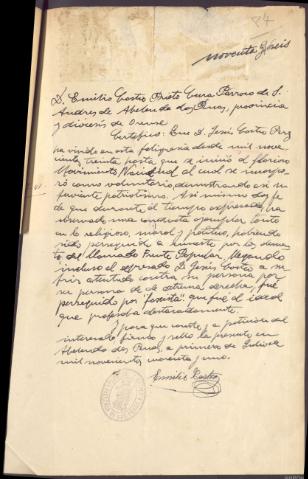 84
noventa y seis
D. Emilio Castro Prieto Cura Párroco de S.
Andres de Abeleda das Penas, provincia
y diócesis de Orense
Certifico: Que D. Jesús Castro
ha vivido en esta feligresía desde mil nove
cientos treinta hasta que se inició el glorioso
Movimiento Nacional al cual se incorpo
ró como voluntario demostrando así su
ferviente patriotismo. Así mismo doy fe
de que durante el tiempo expresado, ha
observado una conducta ejemplar tanto
en lo religioso, moral y político, habiendo
sido perseguido a muerte por los elemen
tos del llamado Frente Popular, llegando
incluso el expresado D. Jesús Castro a su
frir atentados contra su persona por
su persona de de extrema derecha, fué
perseguido por "fascista" que fué el ideal
que profesaba destacadamente.
Y para que conste y a petición del
interesado firmo y sello la presente en
Abeleda das Penas a primero de Octubre
mil novecientos cuarenta y uno.
Emilio Castro